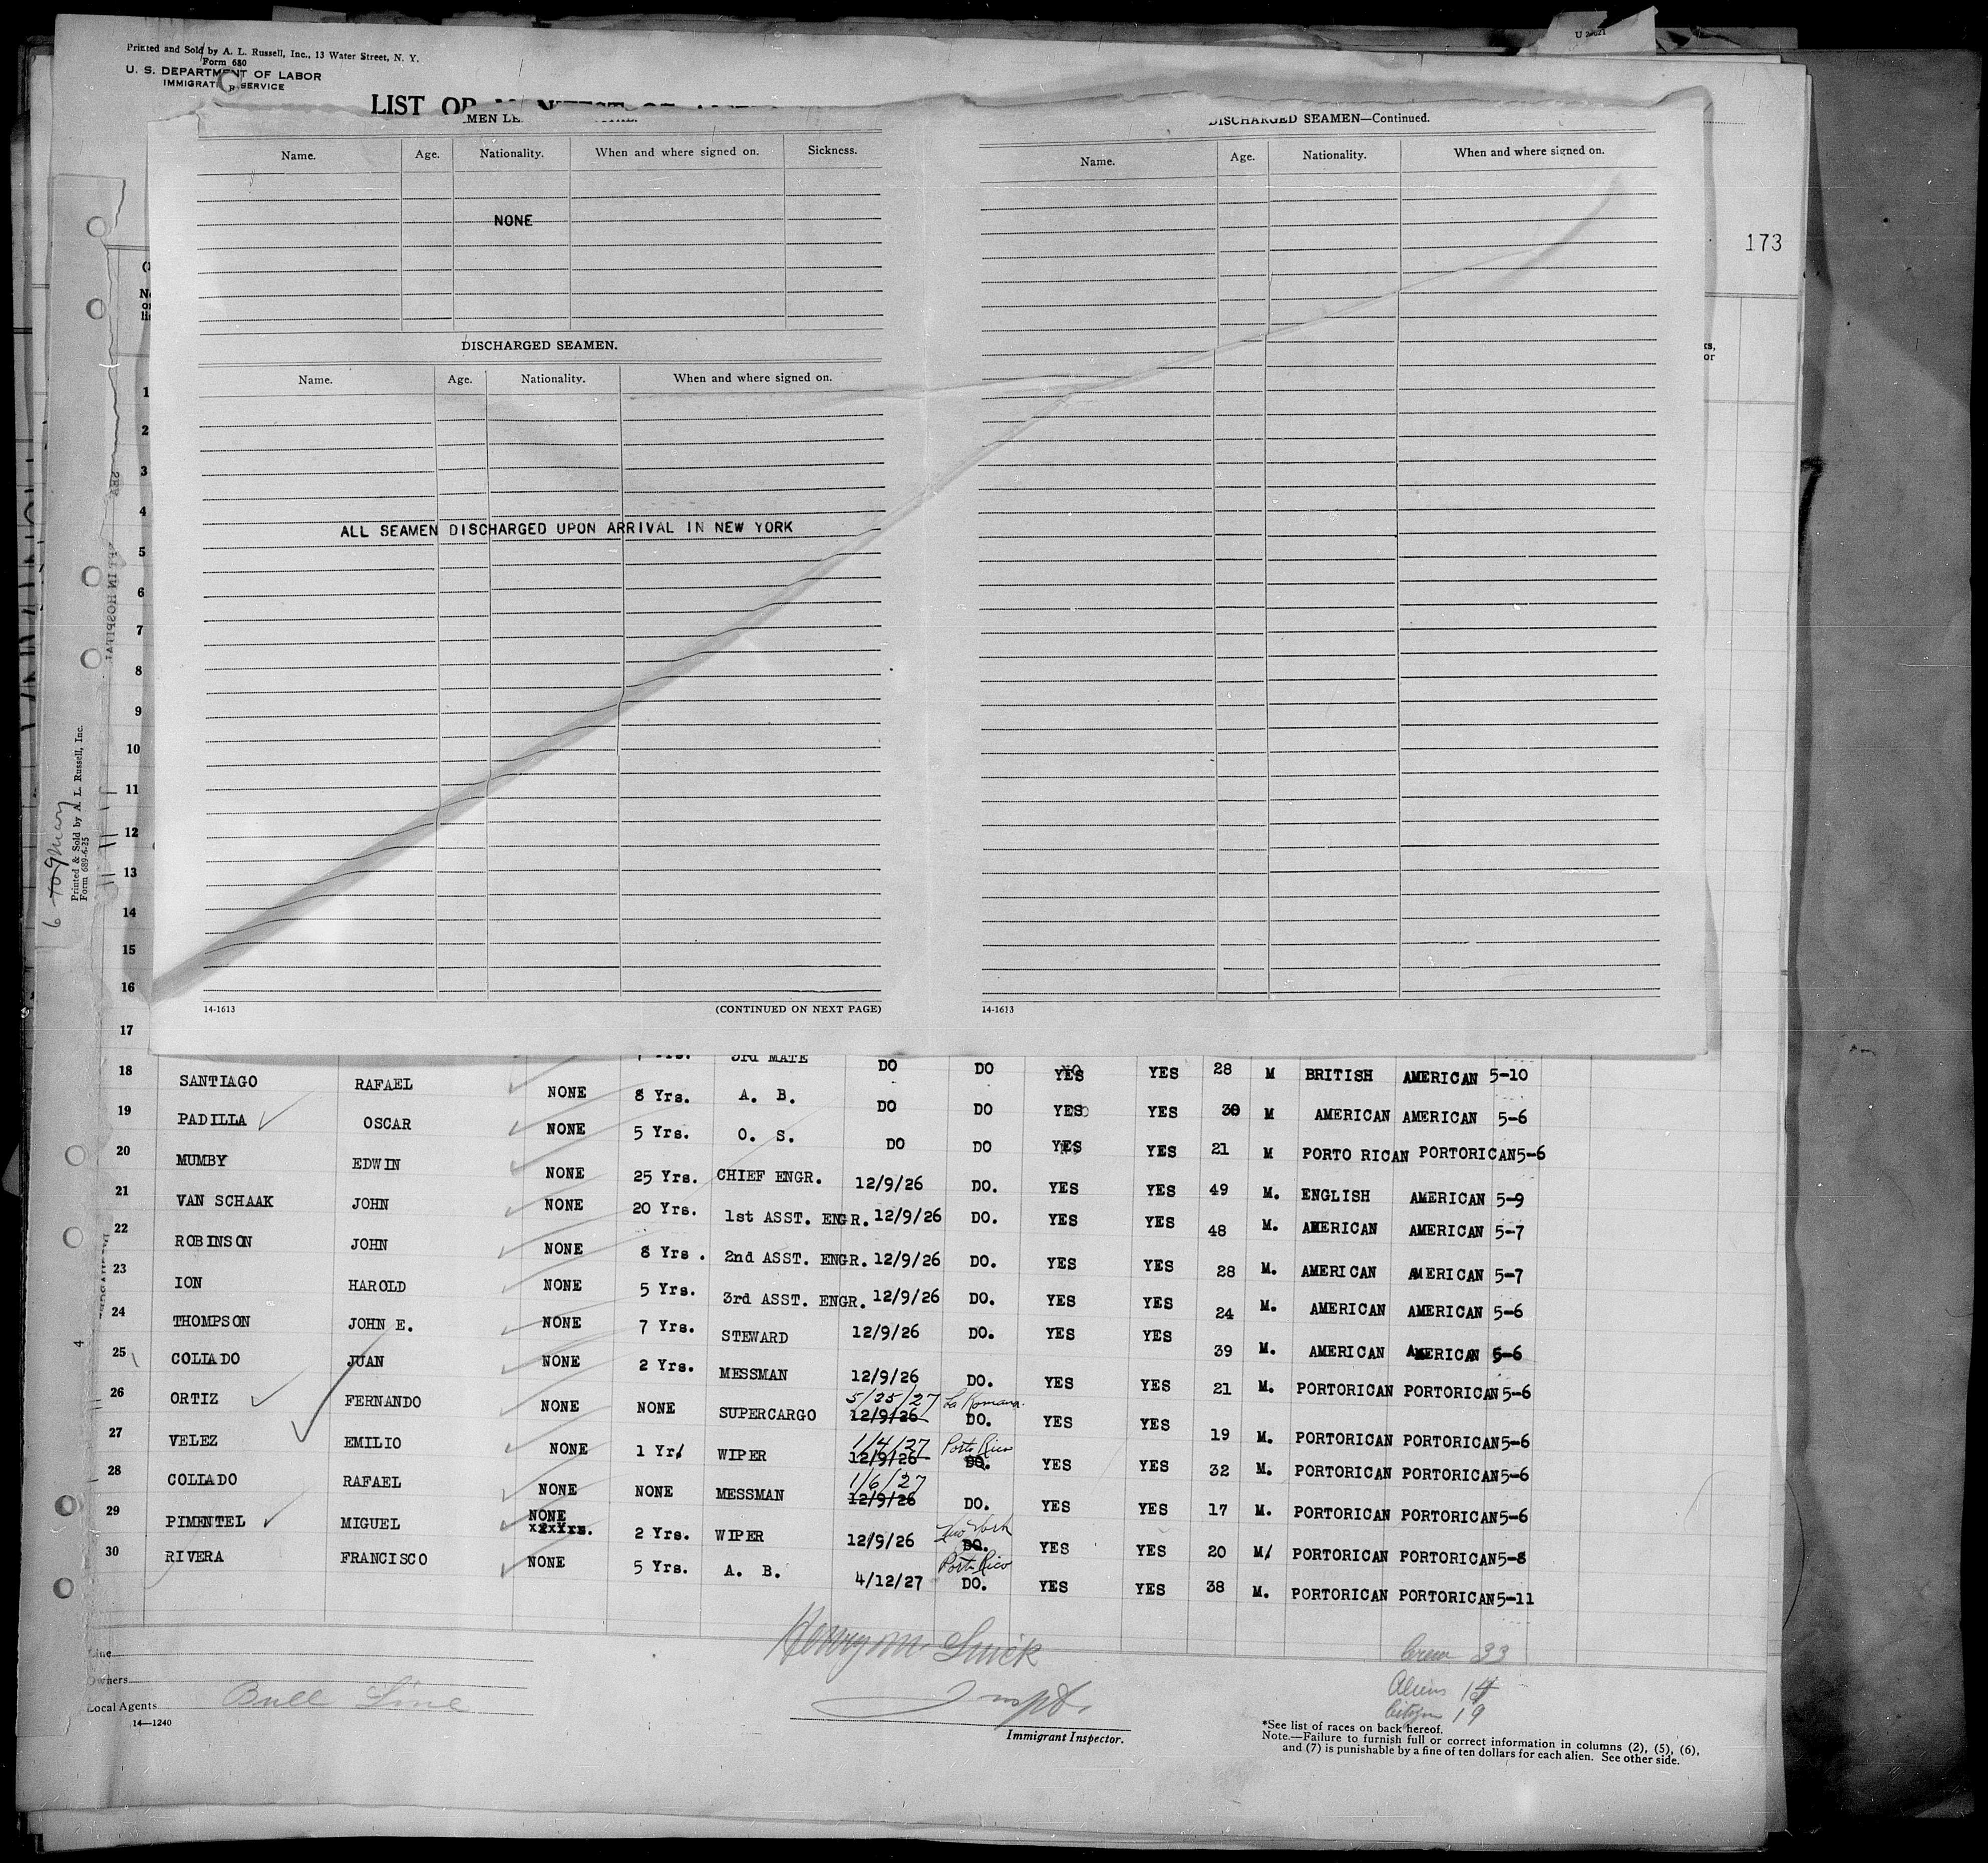 Printed and Sold by A. L. Russell, Inc., 13 Water Street, N. Y.
Form 680
U. S. DEPARTMENT OF LABOR
IMMIGRATION SERVICE
LIST OR
173
DISCHARGED SEAMEN—Continued.
Name. Age. Nationality. When and where signed on. Sickness.
NONE
Name. Age. Nationality. When and where signed on.
DISCHARGED SEAMEN.
Name. Age. Nationality. When and where signed on.
ALL SEAMEN DISCHARGED UPON ARRIVAL IN NEW YORK
14-1613 (CONTINUED ON NEXT PAGE)
14-1613
Printed & Sold by A. L. Russell, Inc.
Form 689-6-25
1
2
3
4
5
6
7
8
9
10
11
12
13
14
15
16
17
3rd MATE DO DO YES YES 28 M BRITISH AMERICAN 5-10
18 SANTIAGO RAFAEL NONE 8 Yrs. A. B. DO DO YES YES 30 M AMERICAN AMERICAN 5-6
19 PADILLA OSCAR NONE 5 Yrs. O. S. DO DO YES YES 21 M PORTO RICAN PORTORICAN 5-6
20 MUMBY EDWIN NONE 25 Yrs. CHIEF ENGR. 12/9/26 DO. YES YES 49 M. ENGLISH AMERICAN 5-9
21 VAN SCHAAK JOHN NONE 20 Yrs. 1st ASST. ENGR. 12/9/26 DO. YES YES 48 M. AMERICAN AMERICAN 5-7
22 ROBINSON JOHN NONE 8 Yrs. 2nd ASST. ENGR. 12/9/26 DO. YES YES 28 M. AMERICAN AMERICAN 5-7
23 ION HAROLD NONE 5 Yrs. 3rd ASST. ENGR. 12/9/26 DO. YES YES 24 M. AMERICAN AMERICAN 5-6
24 THOMPSON JOHN E. NONE 7 Yrs. STEWARD 12/9/26 DO. YES YES 39 M. AMERICAN AMERICAN 5-6
25 COLIADO JUAN NONE 2 Yrs. MESSMAN 12/9/26 DO. YES YES 21 M. PORTORICAN PORTORICAN 5-6
5/25/27 La Romana.
26 ORTIZ FERNANDO NONE NONE SUPERCARGO 12/9/26 DO. YES YES 19 M. PORTORICAN PORTORICAN 5-6
1/4/27 Porto Rico
27 VELEZ EMILIO NONE 1 Yr/ WIPER 12/9/26 DO. YES YES 32 M. PORTORICAN PORTORICAN 5-6
1/6/27
28 COLIADO RAFAEL NONE NONE MESSMAN 12/9/26 DO. YES YES 17 M. PORTORICAN PORTORICAN 5-6
New York
29 PIMENTEL MIGUEL NONE 2 Yrs. WIPER 12/9/26 DO. YES YES 20 M/ PORTORICAN PORTORICAN 5-8
Porto Rico
30 RIVERA FRANCISCO NONE 5 Yrs. A. B. 4/12/27 DO. YES YES 38 M. PORTORICAN PORTORICAN 5-11
Line
Owners
Local Agents Bull Line
14—1240
Inspt.
Immigrant Inspector.
Crew 33
Aliens 14
Citizen 19
*See list of races on back hereof.
Note.—Failure to furnish full or correct information in columns (2), (5), (6),
and (7) is punishable by a fine of ten dollars for each alien. See other side.